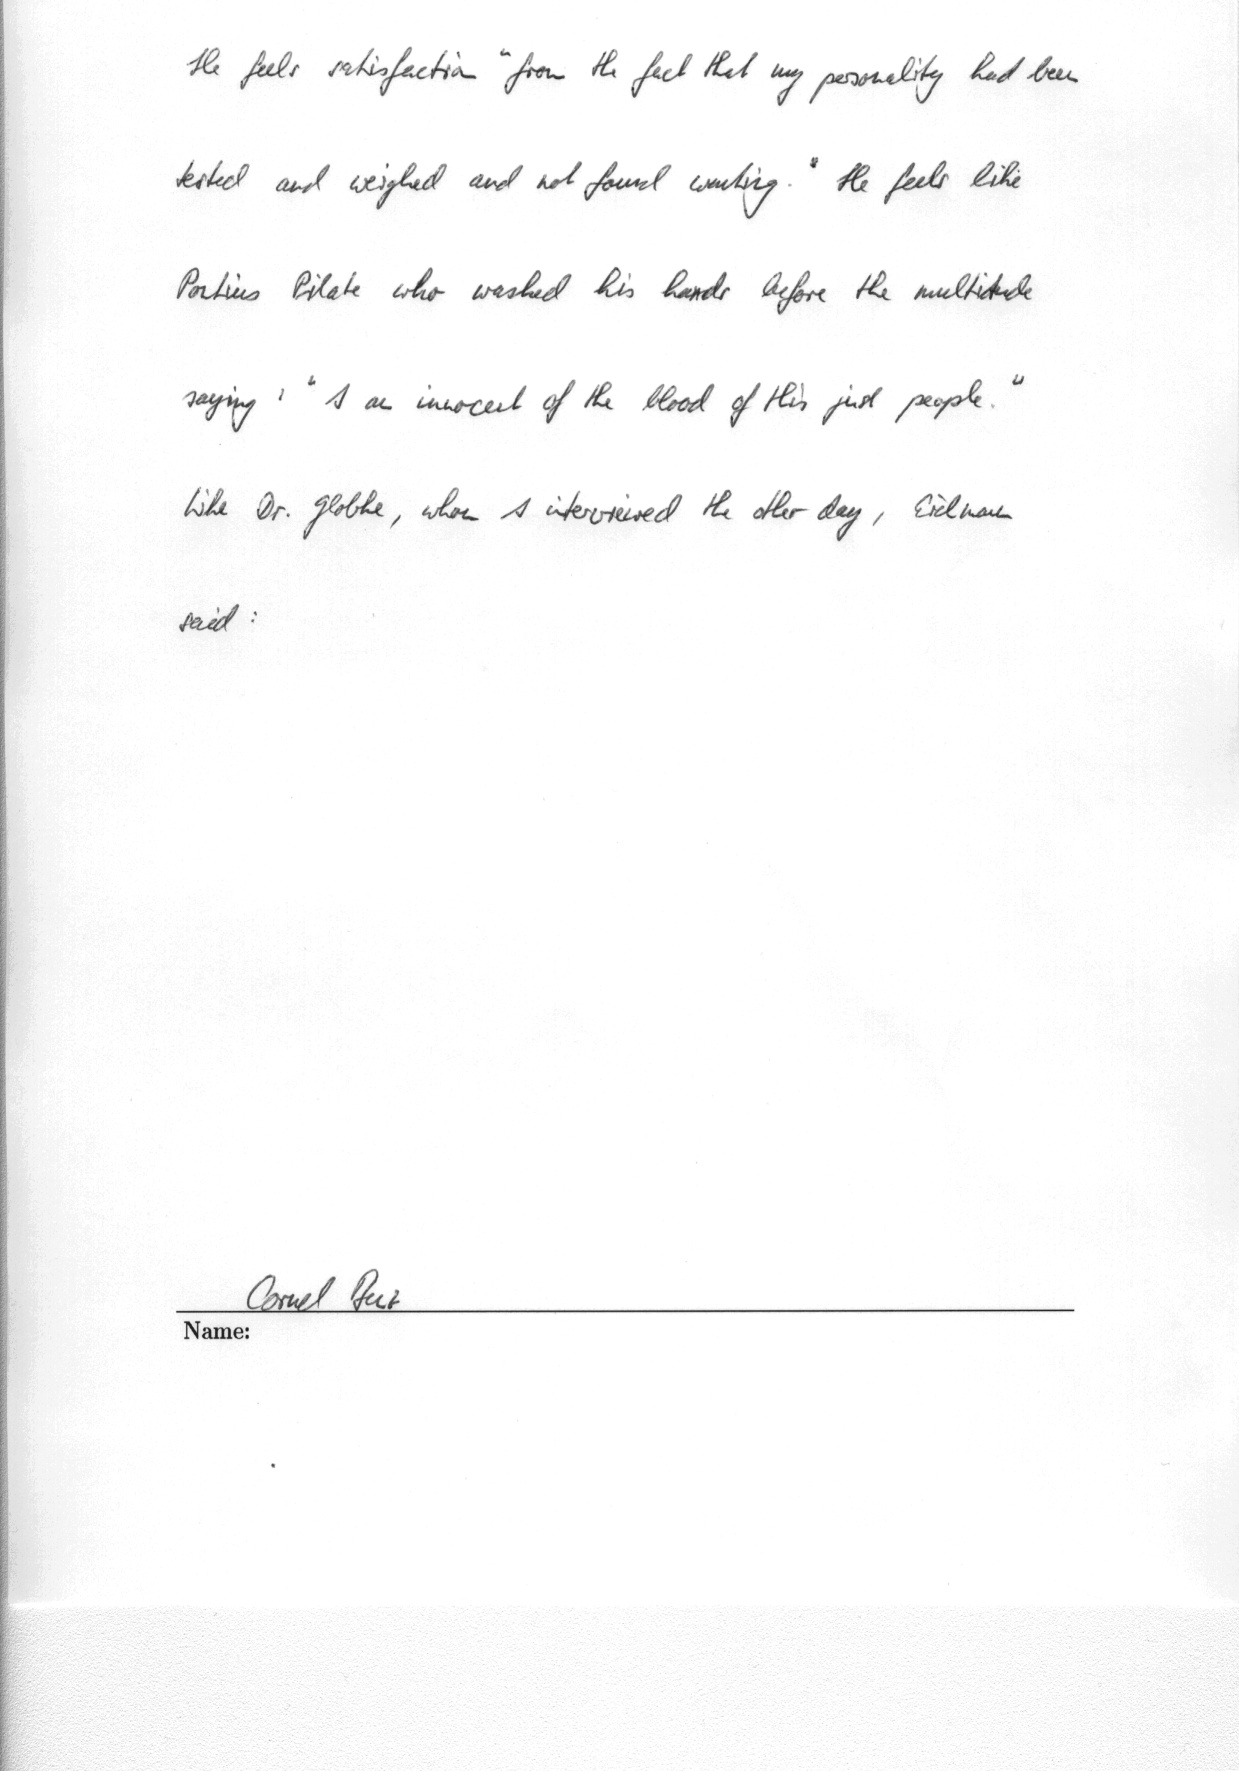 He feels satisfaction "from the fact that my personality had been
tested and weighed and not found wanting." He feels like
Pontius Pilate who washed his hands before the multitude
saying: "I am innocent of the blood of this just people."
Like Dr. Globke, whom I interviewed the other day, Eichmann
said:
Cornel
Name: